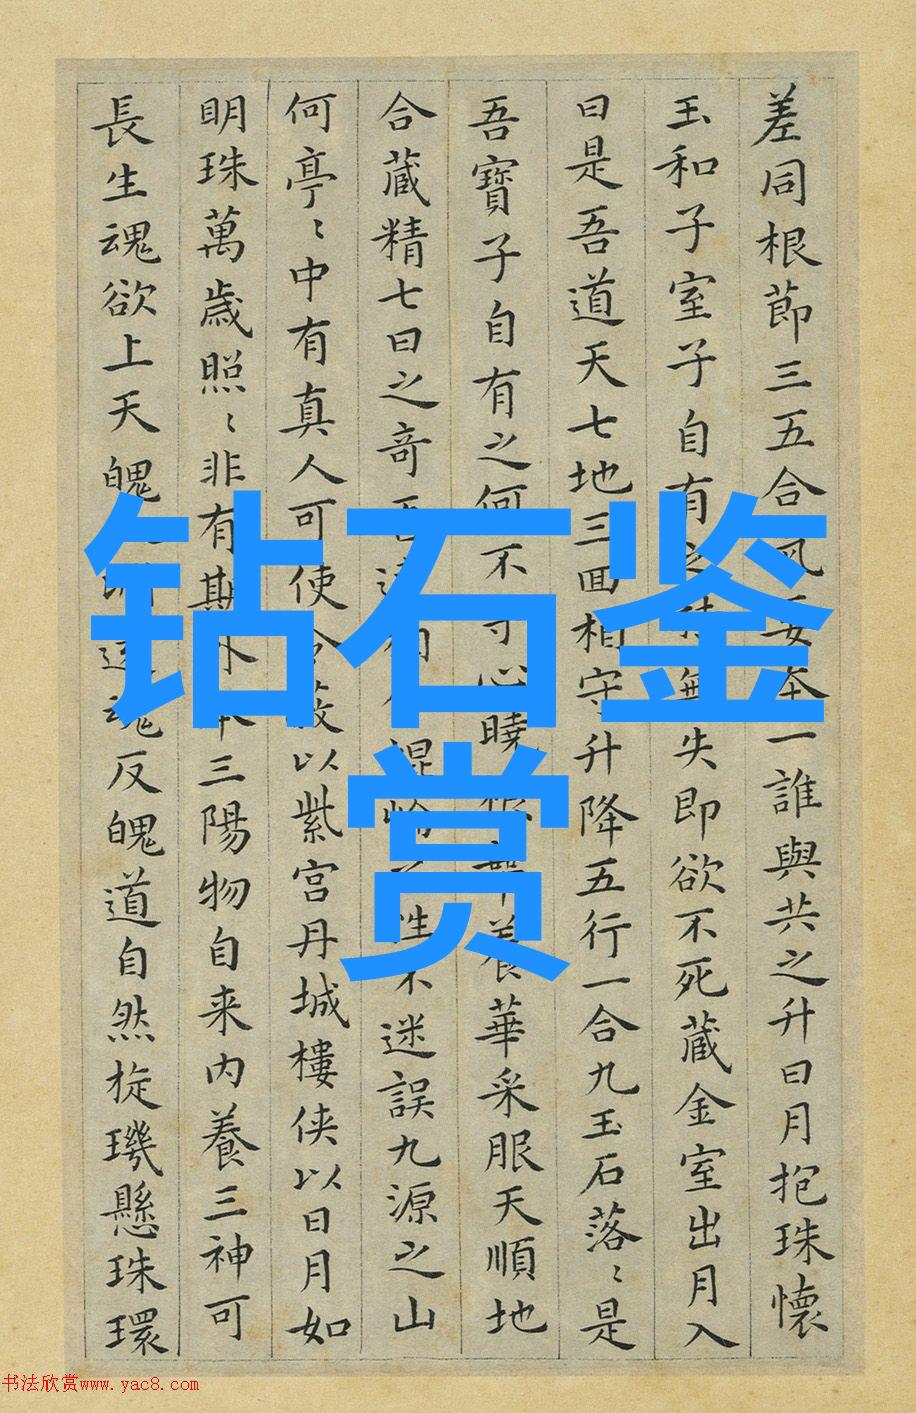 差同根節三五合氣要本一誰與共之升日月抱珠懷
玉和子室子自有之 無失即欲不死藏金室出月入
日是吾道天七地三回相守升降五行一合九玉石落〻是
吾寶子自有之何不守心曉根 養華采服天順地
合藏精七日之奇 性不迷誤九源之山
何亭〻中有真人可使令蔽以紫宮丹城樓俠以日月如
明珠萬歲照〻非有期外本三陽物自来内養三神可
長生魂欲上天魄 魂反魄道自然旋璣懸珠環
钻石鉴
赏
书法欣赏www.yac8.com